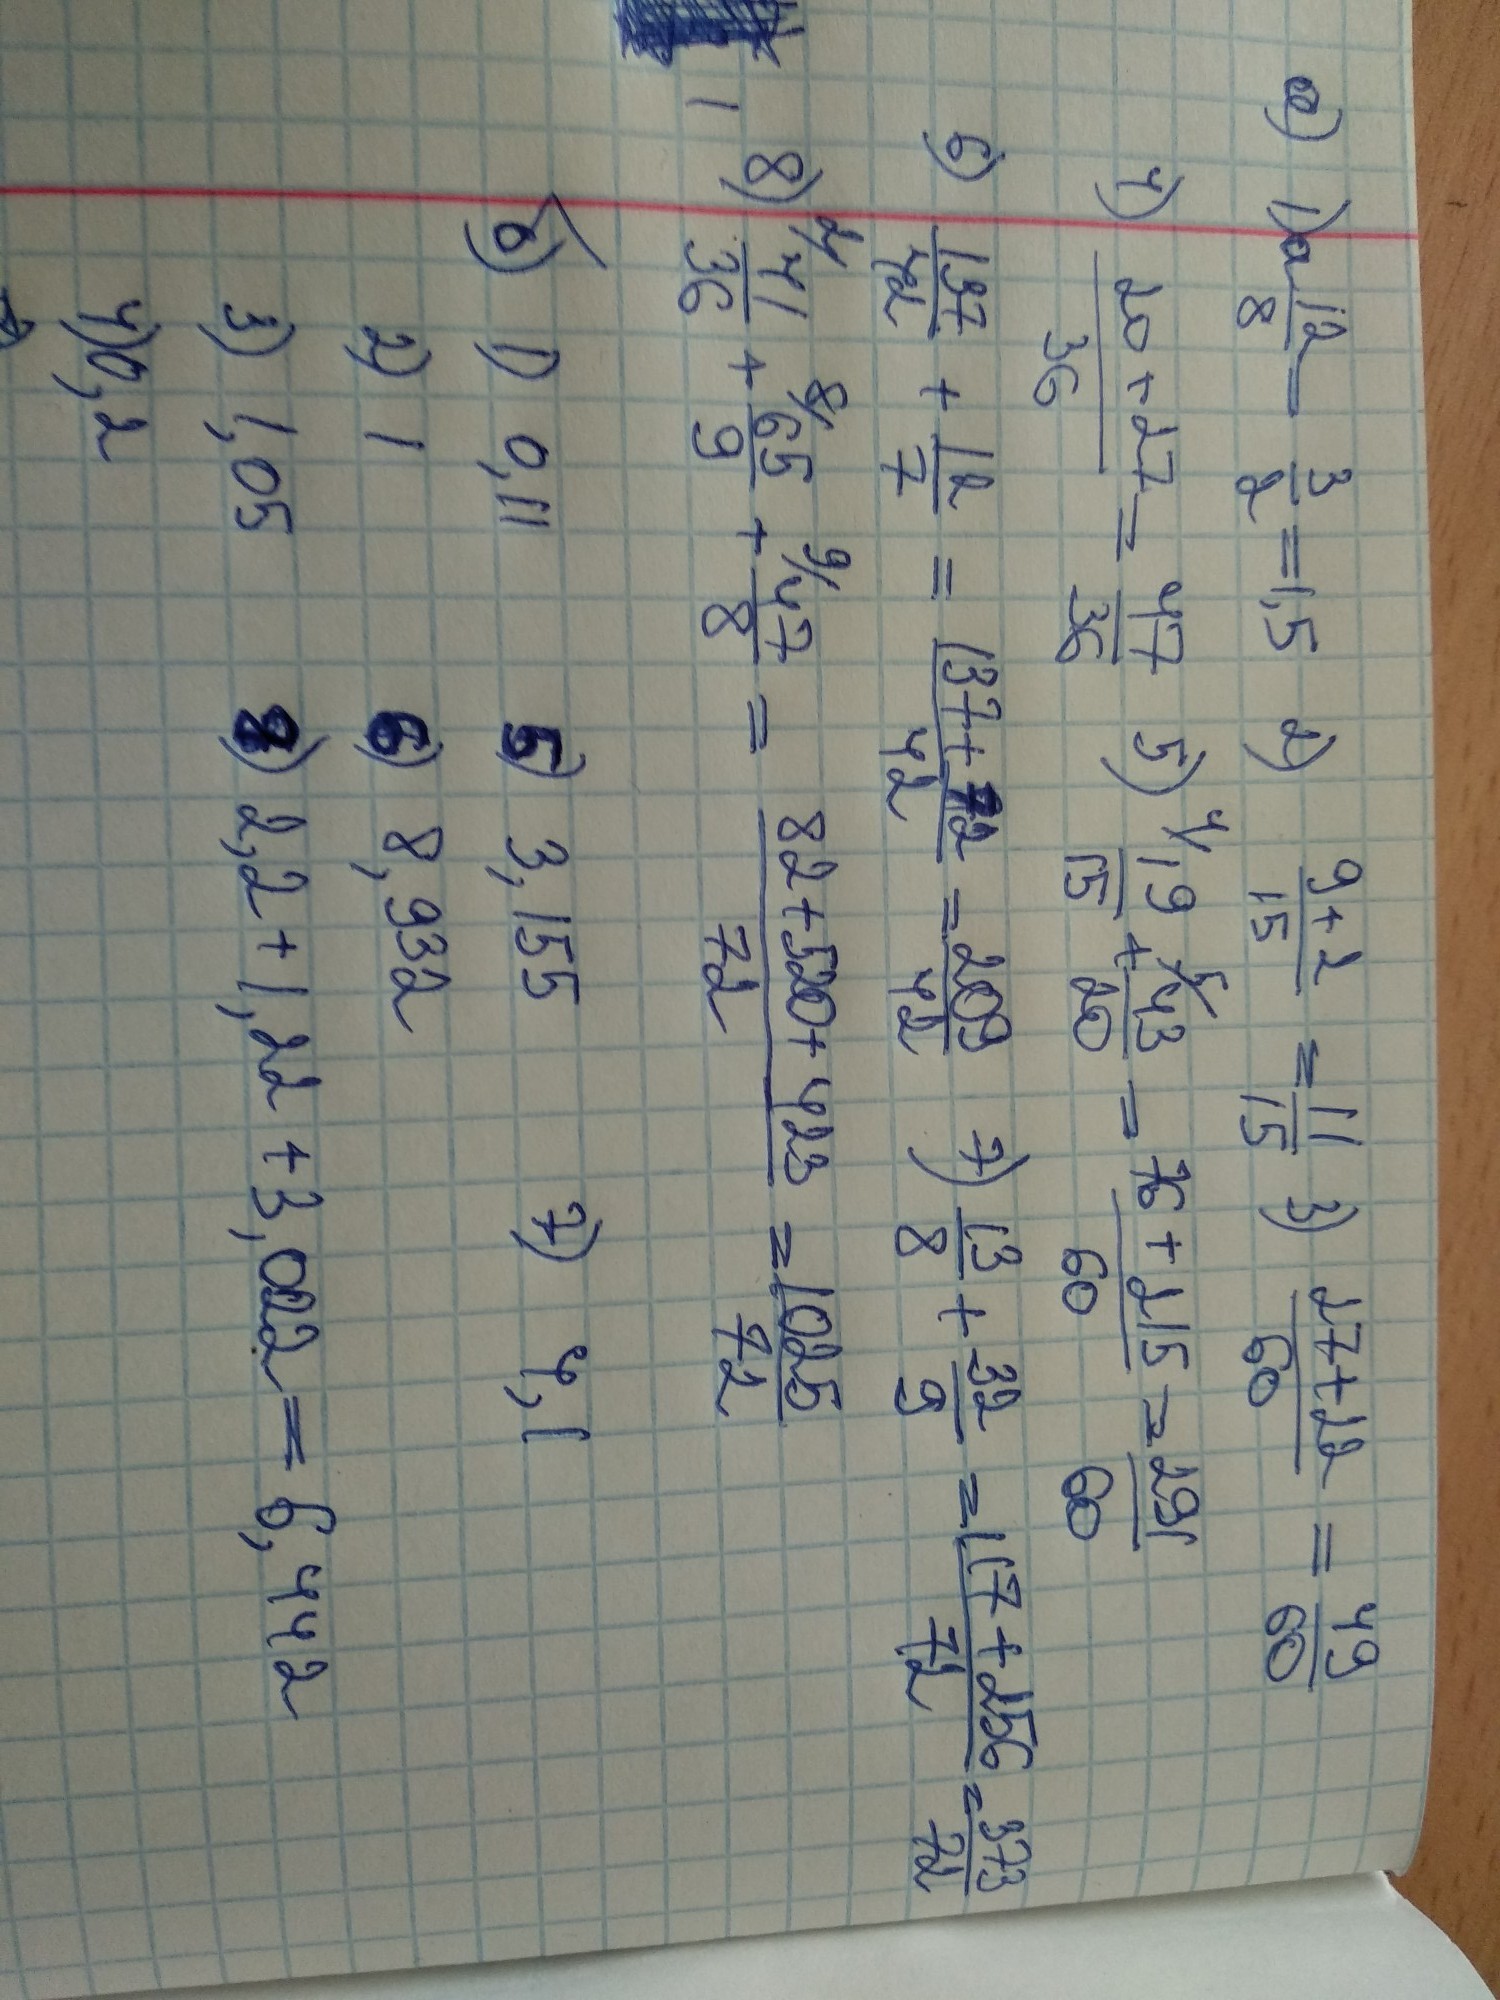 а) 1) 12/8 = 3/2 = 1,5 2) 9+2/15 = 11/15 3) 27+22/60 = 49/60
4) 20+27/36 = 47/36 5) 4/ 19/15 + 5/ 43/20 = 76+215/60 = 291/60
6) 137/42 + 12/7 = 137+72/42 = 209/42 7) 13/8 + 32/9 = 117+256/72 = 373/72
8) 2/ 41/36 + 8/ 65/9 + 9/ 47/8 = 82+520+423/72 = 1025/72
б) 1) 0,11 5) 3,155 7) 4,1
2) 1 6) 8,932
3) 1,05 8) 2,2+1,22+3,022=6,442
4) 0,2